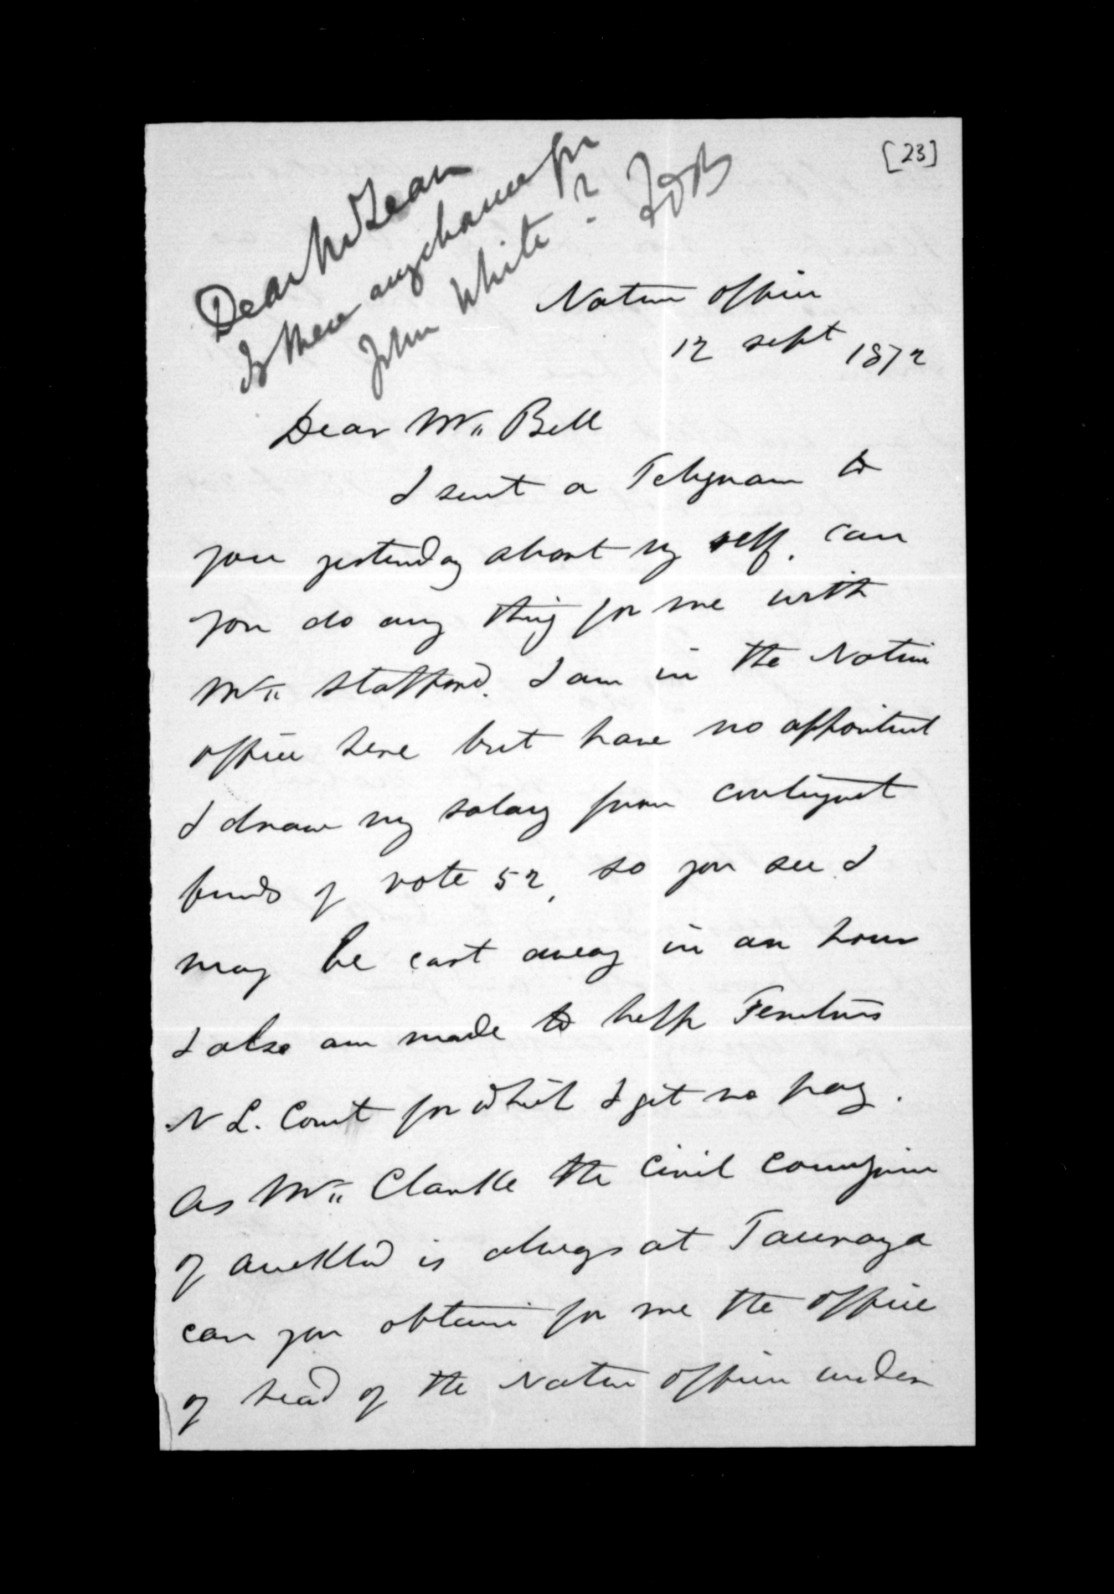 [23]
Dear McLean
Is there any chance for
John White? FDB
Native Office
12 Sept 1872
Dear Mr. Bell
I sent a Telegram to
you yesterday about my self. can
you do any thing for me with
Mr. Stafford. I am in the Native
office here but have no appointment
I draw my salary from contingent
funds of vote 52, so you see I
may be cast away in an hour
I also am made to help Fenton's
N L. Court for which I get no pay.
As Mr. Clarke the Civil Commissioner
of Auckland is always at Tauranga
can you obtain for me the office
of head of the Native office under